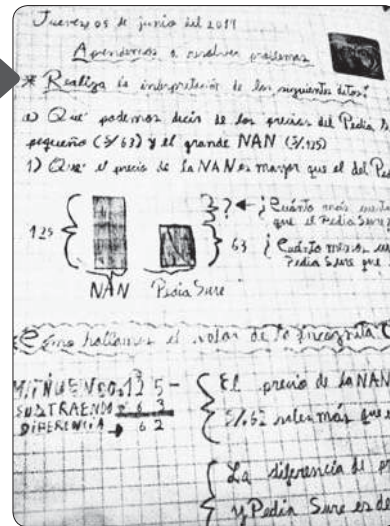 Jueves 05 de junio del 2017
Aprendemos a resolver problemas
* Realiza la interpretación de los siguientes datos:
a) Qué podemos decir de los precios del Pedia
pequeño (S/63) y el grande NAN (S/.125)
1) Que el precio de la NAN es mayor que el del
125
? ← ¿Cuánto más
que el Pedia Sure
63 ¿Cuánto menos
Pedia Sure que
NAN Pedia Sure
¿Cómo hallamos el valor de la incógnita
MINUENDO → 125 -
SUSTRAENDO → 63
DIFERENCIA → 62
El precio de la NAN
S/.62 soles más que
La diferencia de
y Pedia Sure es de